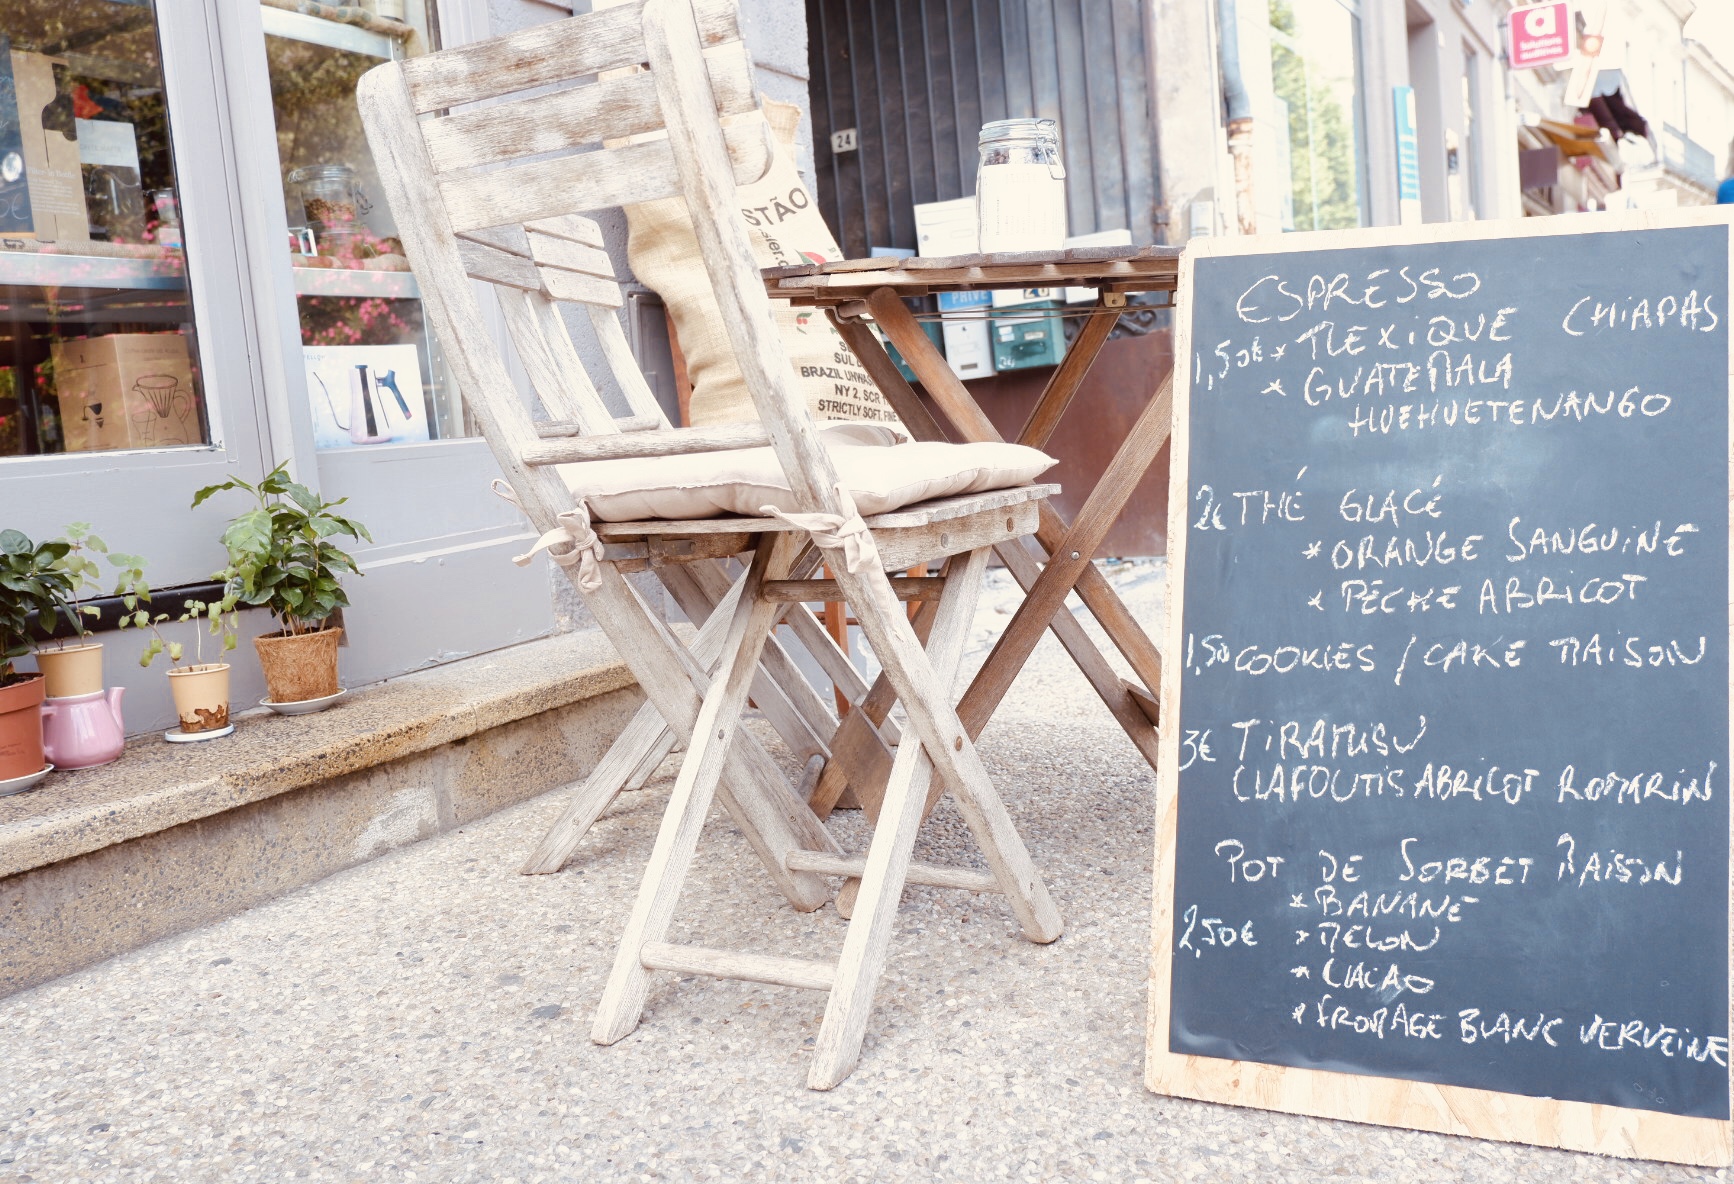 ESPRESSO
1,50€ * MEXIQUE CHIAPAS
* GUATEMALA
HUEHUETENANGO
2€ THÉ GLACÉ
* ORANGE SANGUINE
* PÊCHE ABRICOT
1,50 COOKIES / CAKE MAISON
3€ TIRAMISU
CLAFOUTIS ABRICOT ROMARIN
POT DE SORBET MAISON
* BANANE
2,50€ * MELON
* CACAO
* FROMAGE BLANC VERVEINE
24
STÃO
BRAZIL
NY 2, SCR
STRICTLY SOFT, FINE
PRIVÉ
a
Solutions